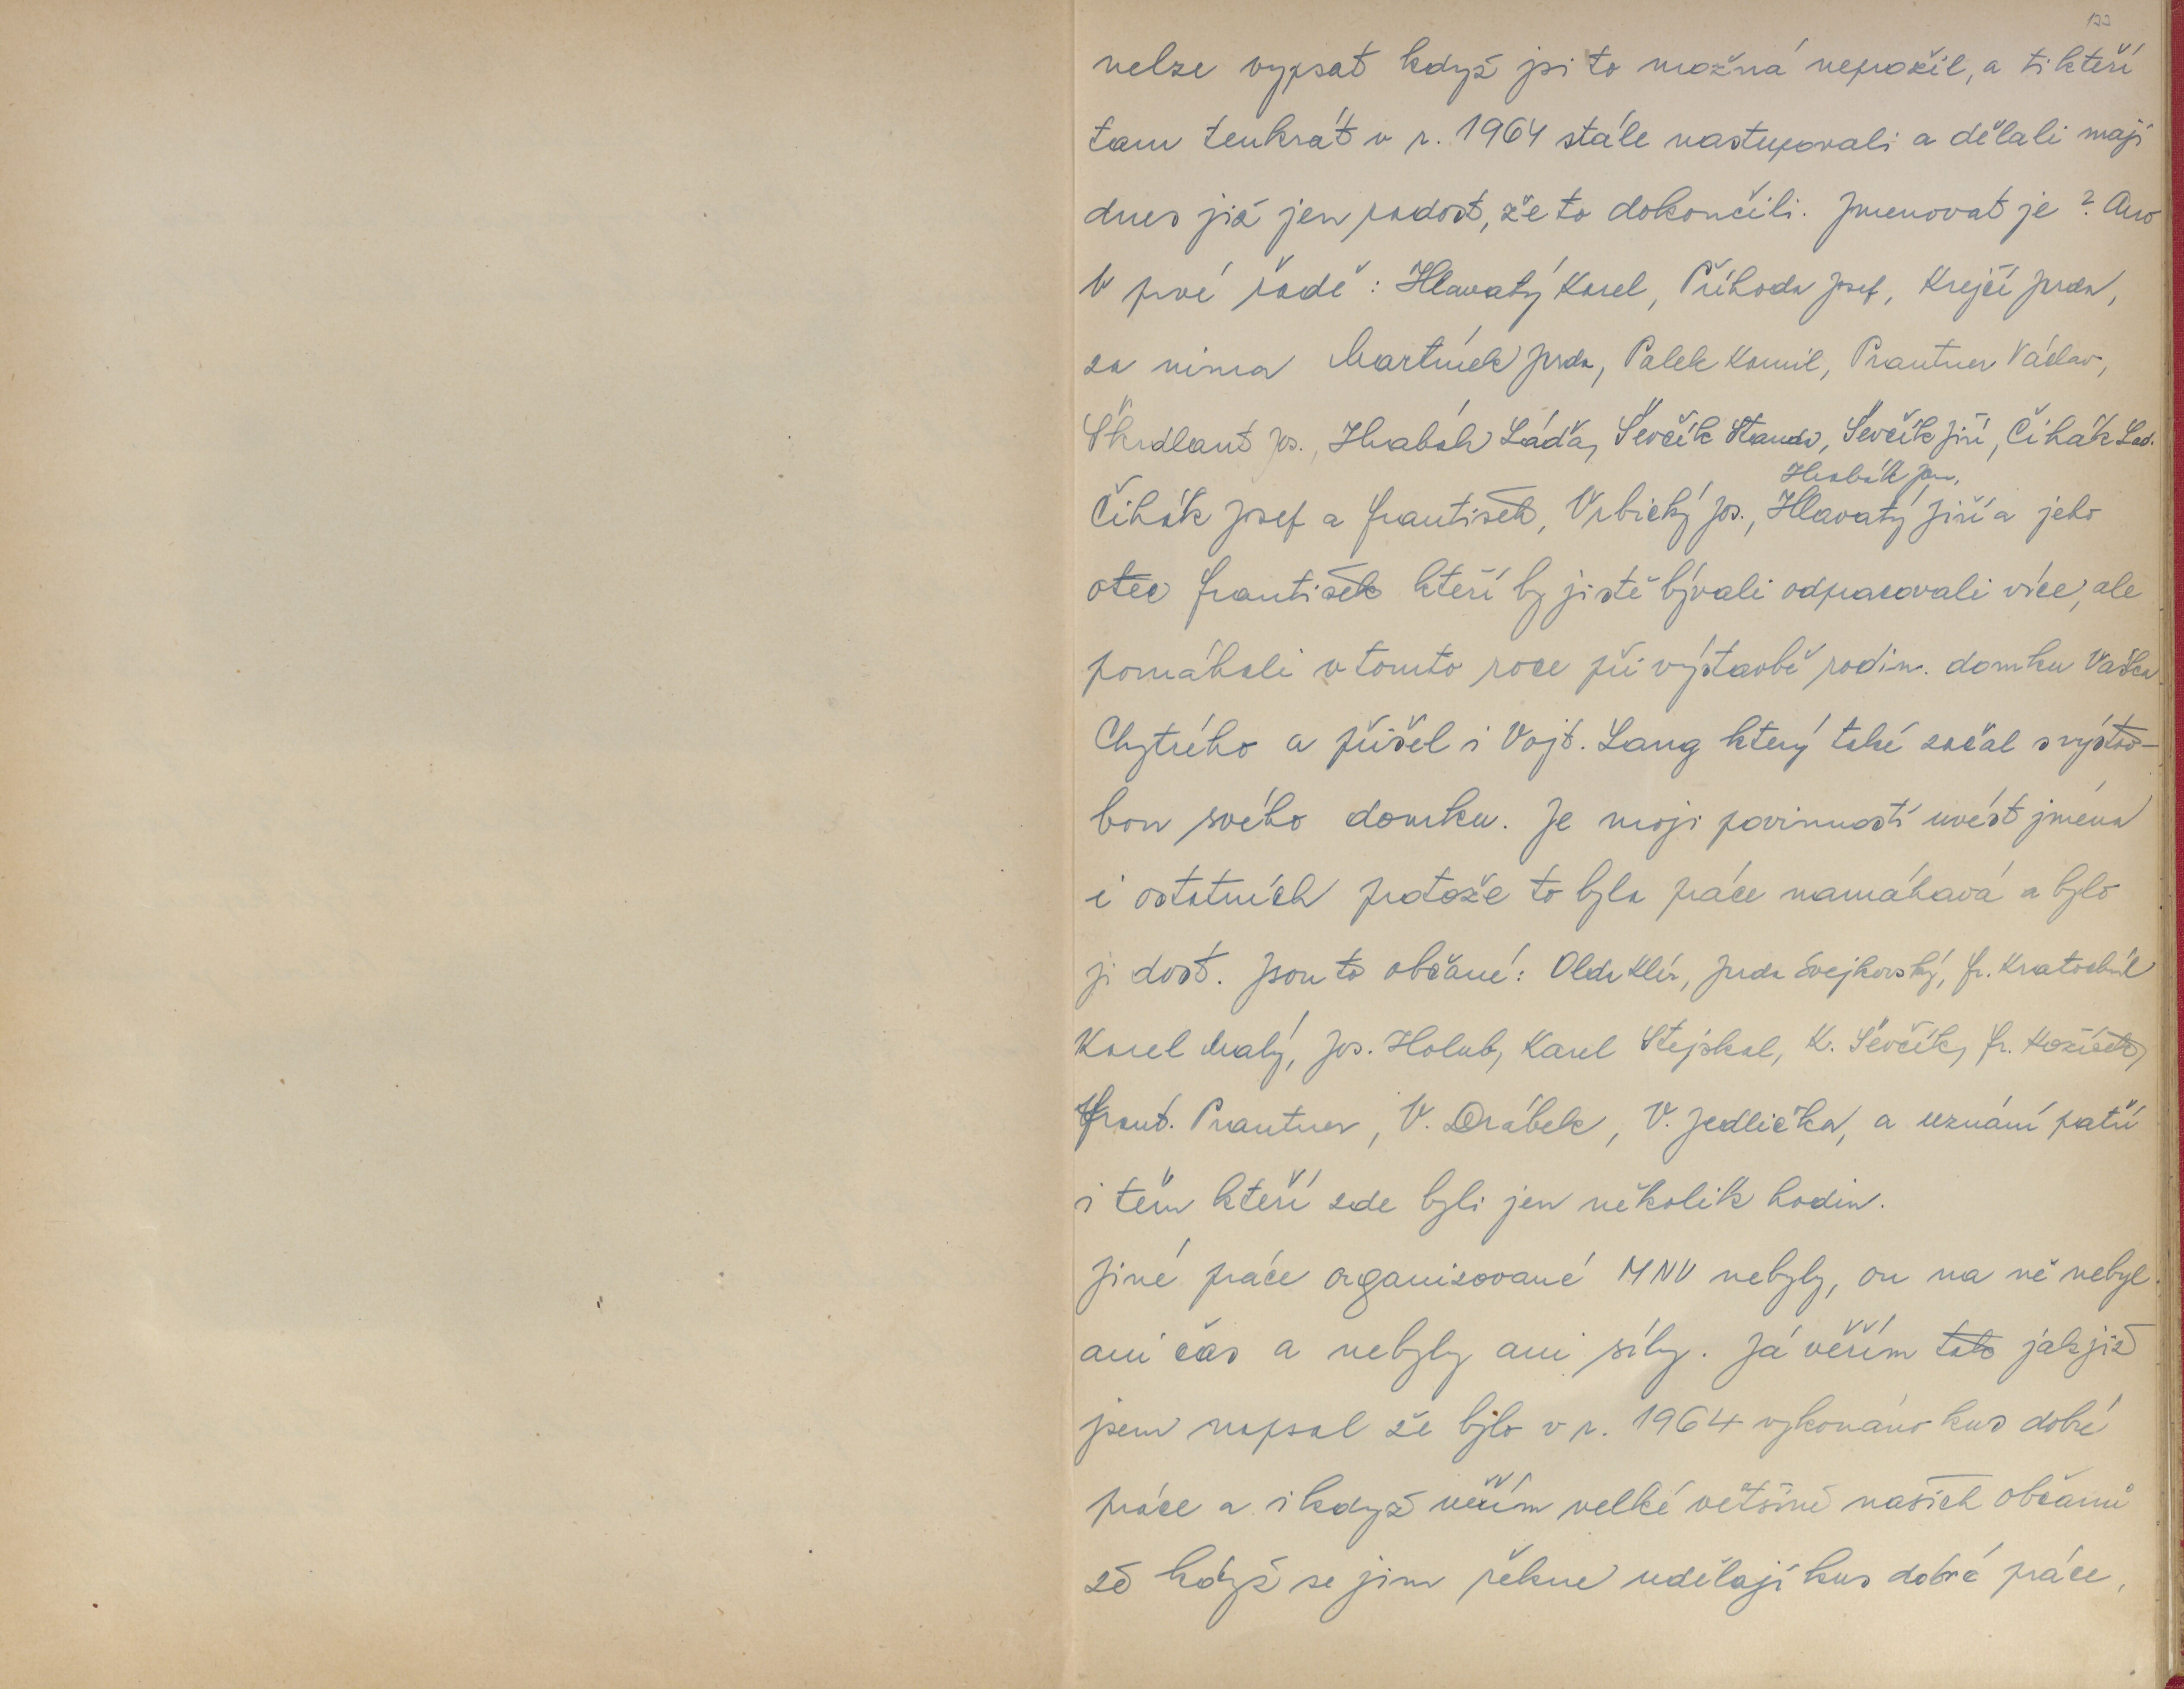 133
nelze vypsat když jsi to možná nepožil, a ti kteří
tam tenkrát v r. 1964 stále nastupovali a dělali mají
dnes již jen radost, že to dokončili. Jmenovat je? Ano
V prvé řadě: Hlavatý Karel, Příhoda Josef, Krejčí Jarda,
za nima Martínek Jarda, Palek Kamil, Prantner Václav,
Škrdlant Jos., Hrabák Láďa, Ševčík Standa, Ševčík Jiří, Čihák Lad.
Hrabák Jan,
Čihák Josef a František, Vrbický Jos., Hlavatý Jiří a jeho
otec František kteří by jistě bývali odpracovali více, ale
pomáhali v tomto roce při výstavbě rodin. domku Vaška
Chytrého a přišel i Vojt. Lang který také začal s výstav-
bou svého domku. Je moji povinností uvést jména
i ostatních protože to byla práce namáhavá a bylo
jí dost. Jsou to občané: Olda Klír, Jarda Švejkovský, Fr. Kratochvíl
Karel Malý, Jos. Holub, Karel Stejskal, K. Ševčík, Fr. Kožíšek,
Frant. Prantner, V. Drábek, V. Jedlička, a uznání patří
i těm kteří zde byli jen několik hodin.
Jiné práce organisované MNV nebyly, on na ně nebyl
ani čas a nebyly ani síly. Já věřím tak jak již
jsem napsal že bylo v r. 1964 vykonáno kus dobré
práce a i když věřím velké většině našich občanů
že když se jim řekne udělají kus dobré práce,